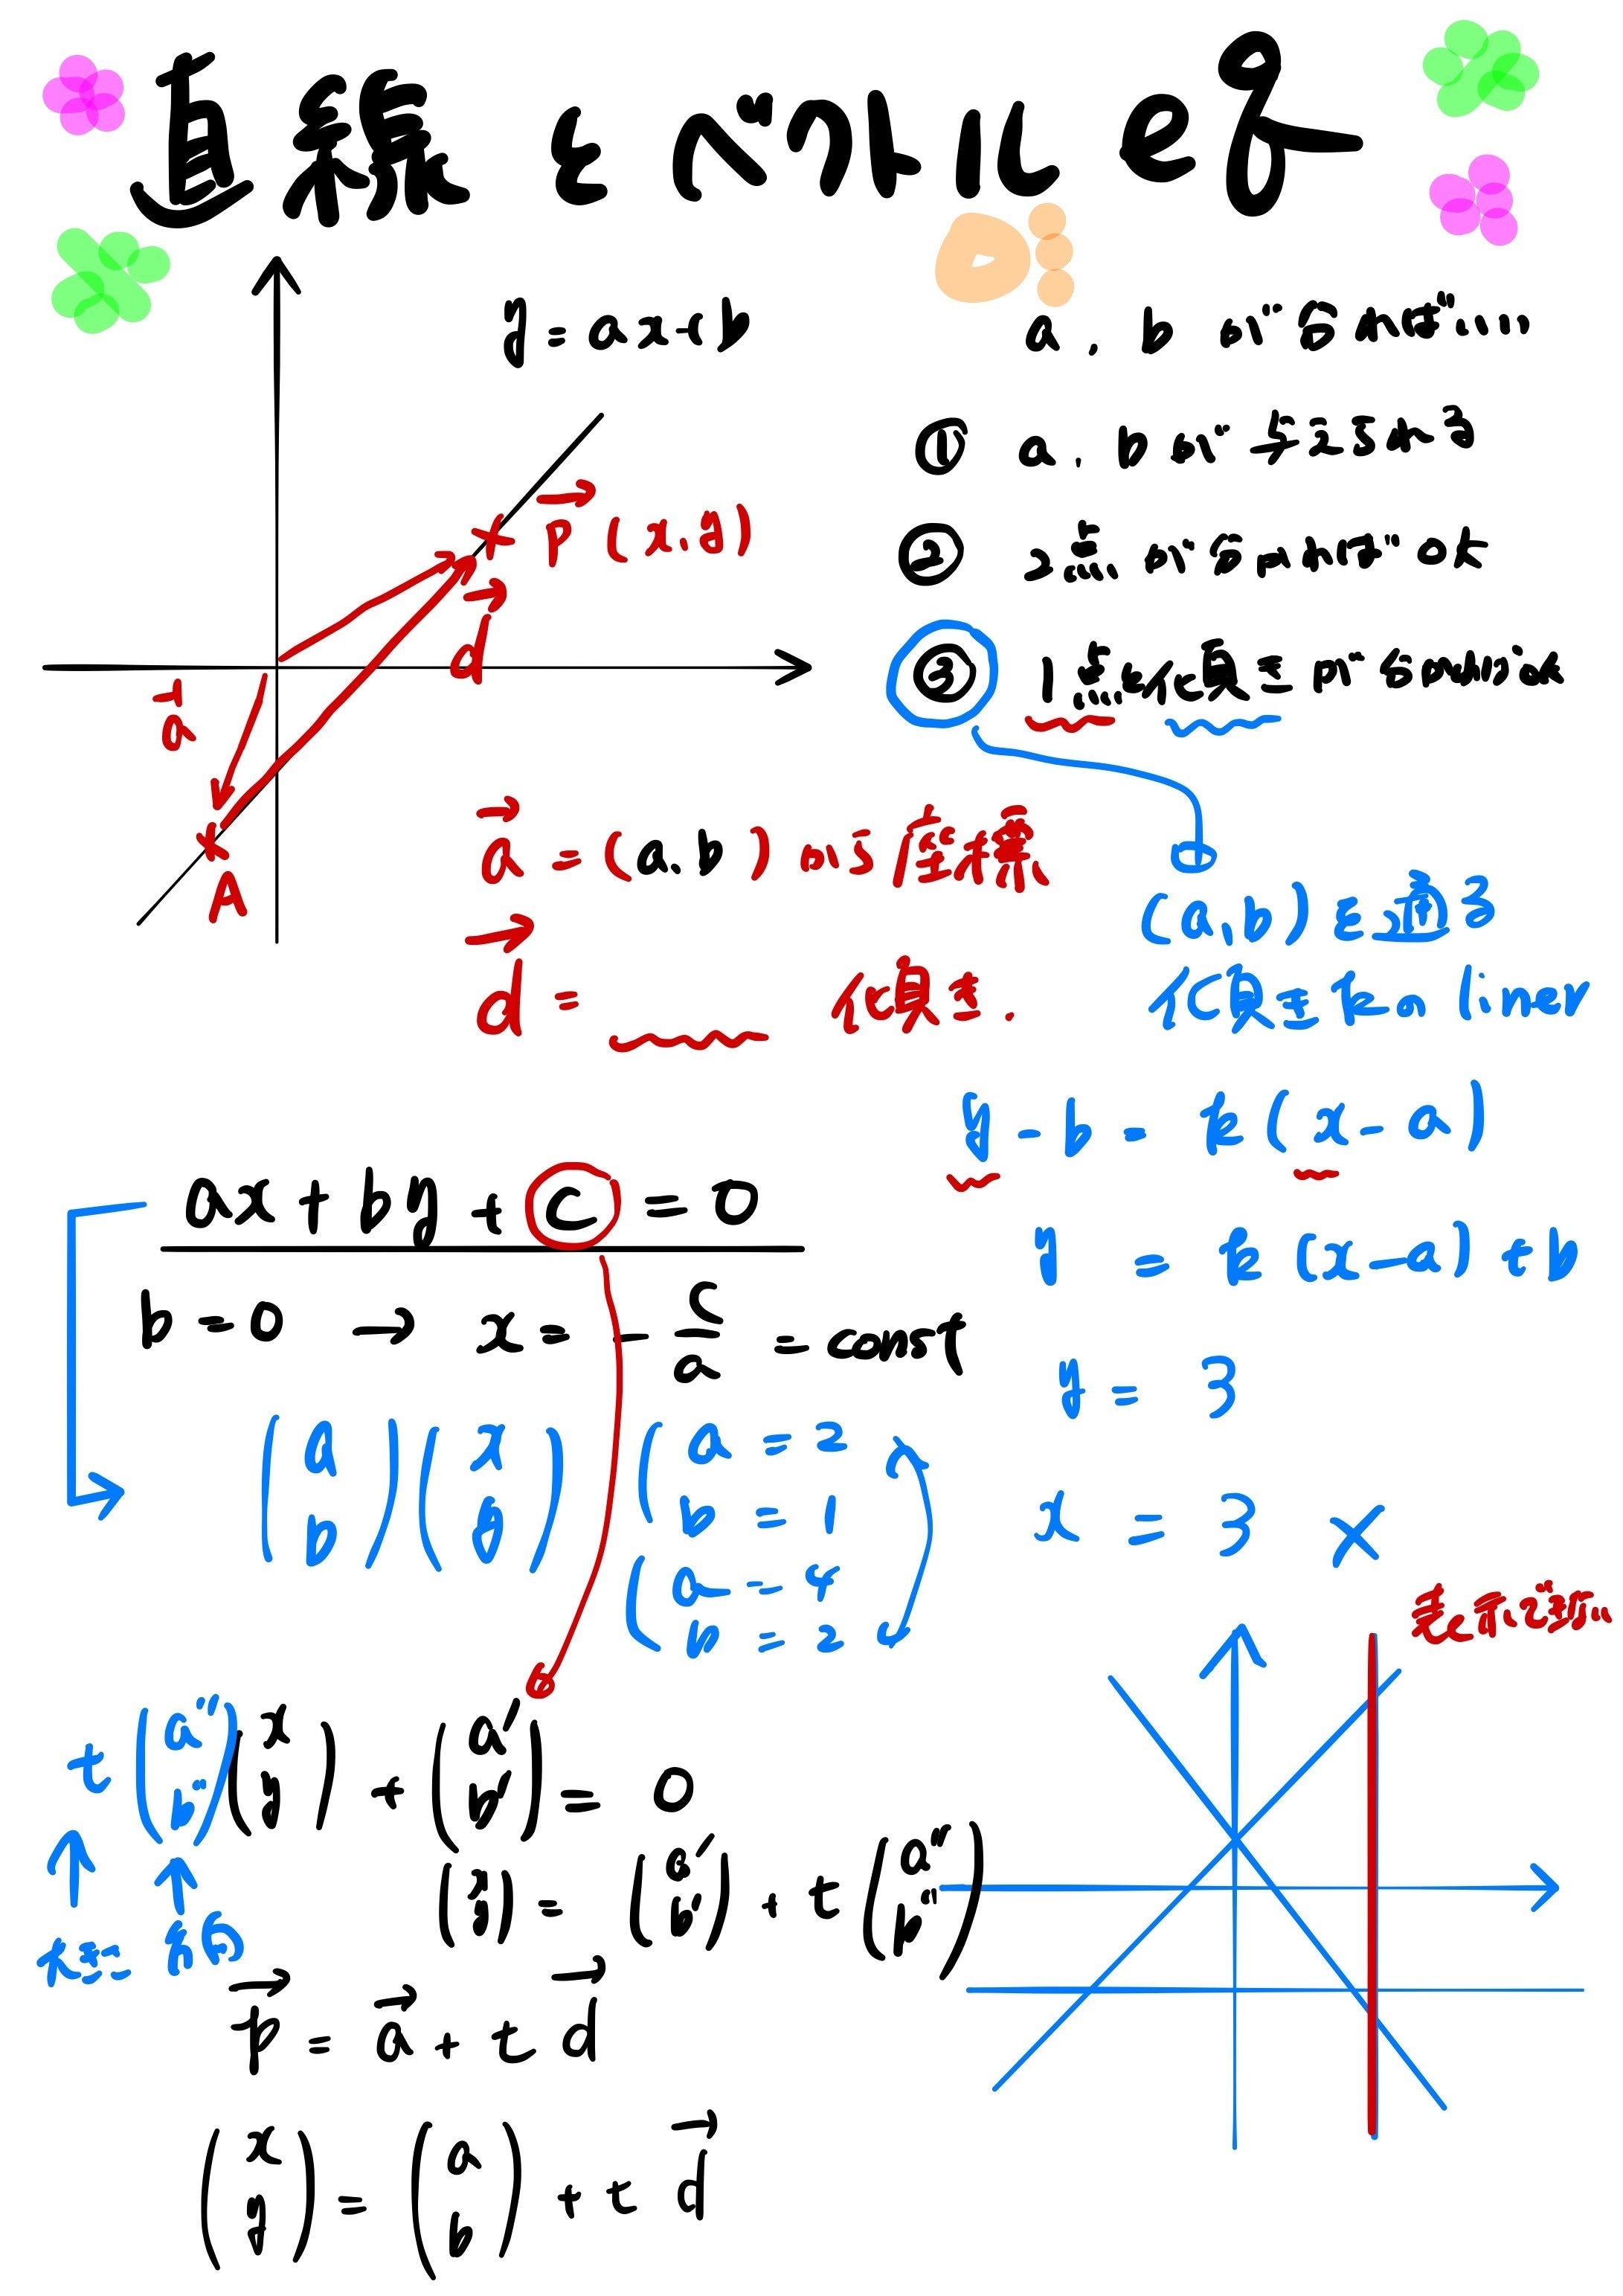 直線とベクトル eq
y = ax + b
a, b が分ればいい
① a, b が与えられる
② 2点が分かればok
③ 1点と傾きが分かればok
p⃗ (x, y)
d⃗
a⃗
A
a⃗ = (a, b) から座標
d⃗ = 傾き.
(a, b) を通る
傾きkの liner
y - b = k(x - a)
y = k(x - a) + b
y = 3
x = 3 ×
表示2難い
ax + by + c = 0
b = 0 → x = - c/a = const
(a b)(x y)
(a = 2
b = 1
(a = 4
b = 2
t (a'' b'')(x y) + (a' b') = 0
大きさ 方向
(x y) = (a' b') + t (a'' b'')
p⃗ = a⃗ + t d⃗
(x y) = (a b) + t d⃗